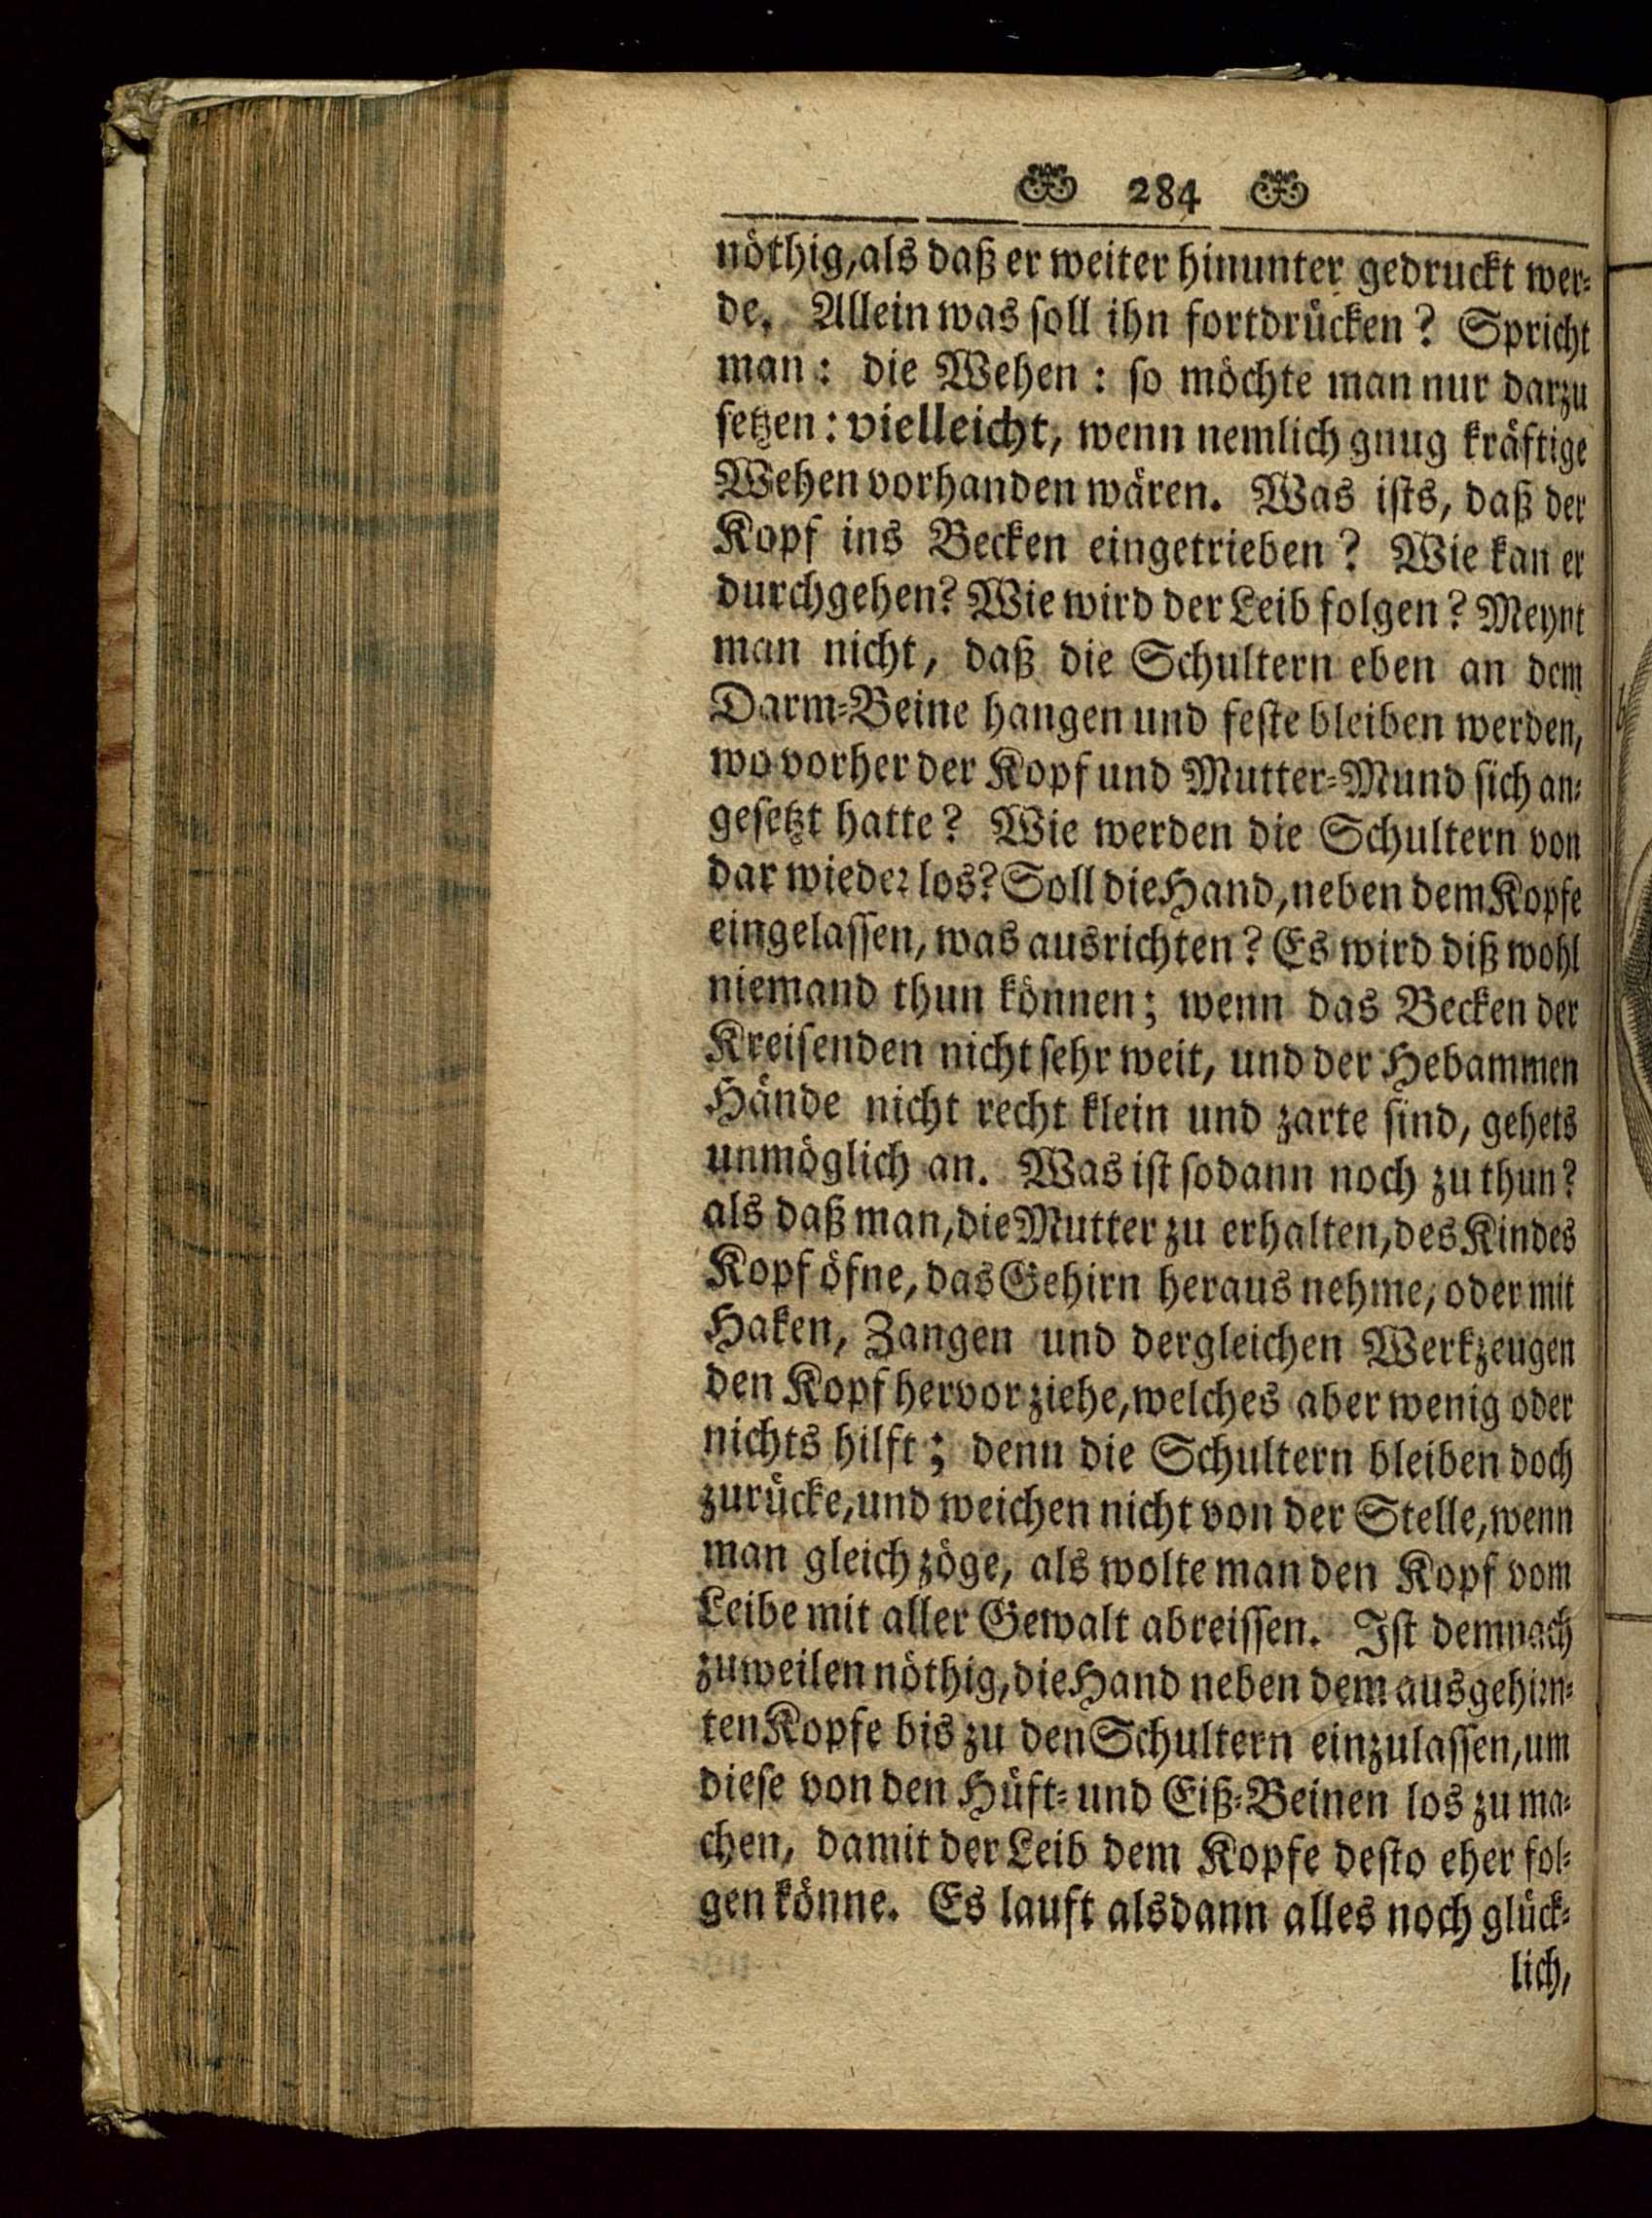 284
nöthig, als daß er weiter hinunter gedruckt wer-
de. Allein was soll ihn fortdrücken? Spricht
man: die Wehen: so möchte man nur darzu
setzen: vielleicht, wenn nemlich gnug kräftige
Wehen vorhanden wären. Was ists, daß der
Kopf ins Becken eingetrieben? Wie kan er
durchgehen? Wie wird der Leib folgen? Meynt
man nicht, daß die Schultern eben an dem
Darm-Beine hangen und feste bleiben werden,
wo vorher der Kopf und Mutter-Mund sich an-
gesetzt hatte? Wie werden die Schultern von
dar wieder los? Soll die Hand, neben dem Kopfe
eingelassen, was ausrichten? Es wird diß wohl
niemand thun können; wenn das Becken der
Kreisenden nicht sehr weit, und der Hebammen
Hände nicht recht klein und zarte sind, gehets
unmöglich an. Was ist sodann noch zu thun?
als daß man, die Mutter zu erhalten, des Kindes
Kopf öfne, das Gehirn heraus nehme, oder mit
Haken, Zangen und dergleichen Werkzeugen
den Kopf hervor ziehe, welches aber wenig oder
nichts hilft; denn die Schultern bleiben doch
zurücke, und weichen nicht von der Stelle, wenn
man gleich zöge, als wolte man den Kopf vom
Leibe mit aller Gewalt abreissen. Ist demnach
zuweilen nöthig, die Hand neben dem ausgehirn-
ten Kopfe bis zu den Schultern einzulassen, um
diese von den Hüft- und Eiß-Beinen los zu ma-
chen, damit der Leib dem Kopfe desto eher fol-
gen könne. Es lauft alsdann alles noch glück-
lich,